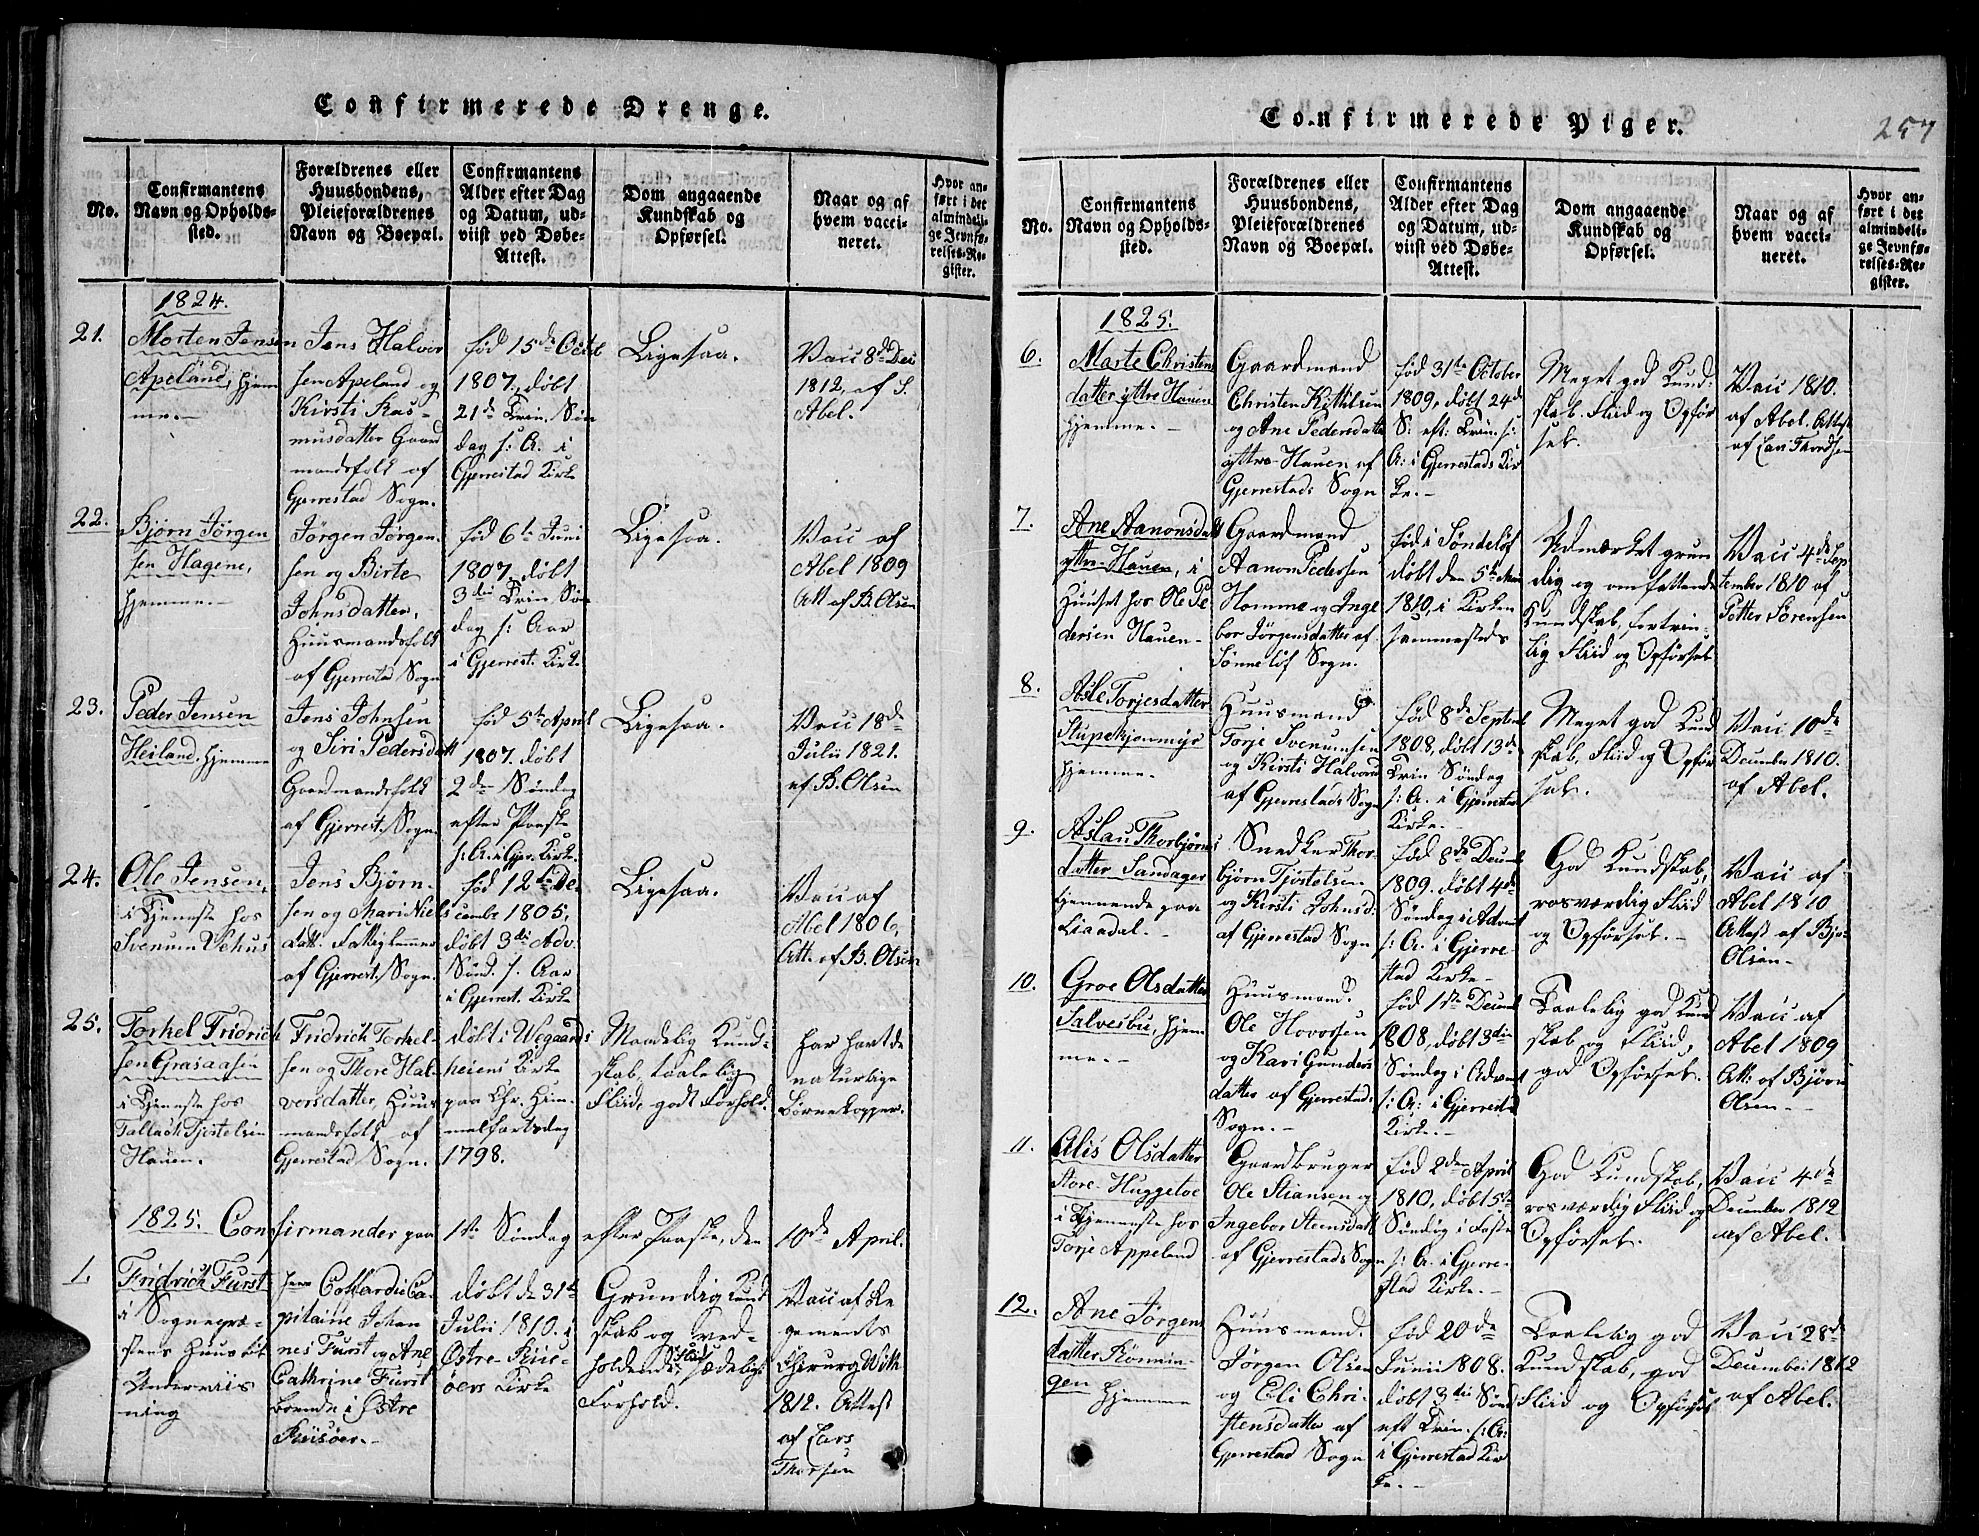 Confirmerede Drenge.
No.
Confirmantens
Navn og Opholds-
sted.
Forældrenes eller
Huusbondens,
Pleieforældrenes
Navn og Boepæl.
Confirmantens
Alder efter Dag
og Datum, ud-
viist ved Døbe-
Attest.
Dom angaaende
Kundskab og
Opførsel.
Naar og af
hvem vacci-
neret.
Hvor an-
ført i det
almindeli-
ge Jevnfø-
relses-Re-
gister.
1824.
21.
Morten Jensen
Apeland, hjem
me.-
Jens Halvor
sen Apeland og
Kirsti Ras-
musdatter Gaard
mandsfolk af
Gjerrestad Sogn.
fød 15de Octbr
1807, døbt
21de Trin. Søn
dag s: A. i
Gjerrestad Kirke
Ligesaa.
Vacc 8de Dec
1812 af S.
Abel.
22.
Bjørn Jørgen
sen Hagene,
hjemme.-
Jørgen Jørgen-
sen og Birte
Johnsdatter,
Huusmandsfolk
af Gjerrestad Sogn
fød 6te Juni
1807, døbt
3die Trin. Søn
dag s: Aar
i Gjerrest. Kirke
Ligesaa.
Vacc af
Abel 1809
Att af B. Olsen
23.
Peder Jensen
Heiland, hjemme
Jens Johnsen
og Siri Pedersdatt
Gaardmandsfolk
af Gjerrest. Sogn.
fød 5te April
1807. døbt
2den Søndag
efter Paaske
s: A. i Gjer. Kirke.
Ligesaa.
Vacc 18de
Julii 1821.
af B. Olsen
24.
Ole Jensen,
i Tjeneste hos
Svenum Vehus
Jens Bjørn-
sen og Mari Niels
datt. Fattiglemmer
af Gjerrest. Sogn.
fød 12te De-
cembr 1805,
døbt 3die Adv.
Sønd. s. Aar
i Gjerrest. Kirke
Ligesaa.
Vacc af
Abel 1806,
Att. af B. Olsen
25.
Torkel Fridrich
sen Grasaasen
i Tjeneste hos
Tallack Tjøstelsen
Hauen.
Fridrich Torkel-
sen og Thore Hal-
vorsdatter, Huus
mandsfolk af
Gjerrestad Sogn.
døbt i Wegaards
heiens Kirke
paa Chr. Him-
melfartsdag
1798.
Maadelig Kund-
skab, taalelig
Fliid, godt Forhold.
har havt de
naturlige
Børnekopper.
1825. Confirmander paa 1ste Søndag efter Paaske, den 10de April.
1.
Fridrich Furst
i Sognepræ-
stens Huus til
Underviis
ning
herr Capitaine Johan
nes Furst og Ane
Cathrine Furst
boende i Østre
Riisøer.-
døbt de 31te
Julii 1810. i
Østre-Riis-
øers Kirke
Grundig Kund
skab og ved-
holdende Fliid, sædeligt
Forhold.
Vacc af Re
gements
Chirurg With
1812. Attest
af Lars
Thorsen
Confirmerede Piger.
257
No.
Confirmantens
Navn og Opholds-
sted.
Forældrenes eller
Huusbondens,
Pleieforældrenes
Navn og Boepæl.
Confirmantens
Alder efter Dag
og Datum, ud-
viist ved Døbe-
Attest.
Dom angaaende
Kundskab og
Opførsel.
Naar og af
hvem vacci-
neret.
Hvor an-
ført i det
almindeli-
ge Jevnfø-
relses-Re-
gister.
1825.
6.
Marte Christens
datter yttre Hauen
hjemme.-
Gaardmand
Christen Kittilsen
og Ane Pedersdatter
yttre Hauen af
Gjerrestads Sogn
fød 31te October
1809, døbt 24de
S: eft: Trin. s:
A: i Gjerrestads Kir
ke.-
Meget god Kund-
skab. Fliid og Opfør
sel.
Vacc 1810.
af Abel. Attest
af
7.
Ane Aanonsdatt
yttre Hauen, i
Huuset hos Ole Pe
dersen Hauen-
Gaardmand
Aanon Pedersen
Homme og Inge
bor Jørgensdatter af
Sønneløf Sogn.
fød i Søndeløf
døbt den 5te
1810, i Kirken
sammesteds
Udmærket grun
dig og omfattende
Kundskab, fortrin-
lig Fliid og Opførsel
Vacc 4de Sep
tember 1810 af
Petter Sørensen
8.
Asle Torjesdatter
Stupekjønmyr
hjemme.-
Huusmand
Torje Svenumsen
og Kirsti Halvorsd
af Gjerrestads Sogn
fød 8de Septemb
1808, døbt 13de
Trin Søndag
s: A. i Gjerrestad
Kirke.-
Meget god Kund
skab, Fliid og Opfør
sel.
Vacc 10de
December 1810.
af Abel.
9.
Aslau Thorbjørns
datter Sandager
tjennende paa
Liaadal.-
Snedker Thor-
bjørn Tjøstelsen
og Kirsti Johnsd:
af Gjerrestad Sogn
fød 8de Decemb
1809. døbt 4de
Søndag i Advent
s: A. i Gjerre-
stad Kirke-
God Kundskab,
rosværdig Fliid
og Opførsel.-
Vacc af
Abel 1810
Attest af Bjø
Olsen-
10.
Groe Olsdatter
Salvesbu, hjem
me.-
Huusmand.
Ole Hovorsen
og Kari Gunders
datter af Gjerrestads
Sogn.-
fød 1ste Decemb
1808, døbt 3die
Søndag i Advent
s: A: i Gjerrestad
Kirke.-
Taalelig god Kund
skab og Fliid,
god Opførsel.
Vacc af
Abel 1809
Att: af Bjørn
Olsen-
11.
Alis Olsdatter
Store-Huggetoe
i Tjeneste hos
Torje Appeland
Gaardbruger
Ole Stiansen og
Ingebor Steensdatt
af Gjerrestads Sogn
fød 2den April
1810, døbt 5te
Søndag i Faste
s: A. i Gjerre-
stad Kirke.-
God Kundskab,
rosværdig Fliid og
Opførsel.
Vacc 4de
December 1812
af Abel.
12.
Ane Jørgens
datter Rømmin-
gen hjemme
Huusmand.
Jørgen Olsen
og Eli Chri-
stensdatter af
Gjerrestad Sogn
fød 20de
Junii 1808.
døbt 3die Sønd
eft Trin. s: A:
i Gjerrestad Kir
ke.-
Taalelig god
Kundskab, god
Fliid og Opførsel
Vacc 28de
December 1812
af Abel.